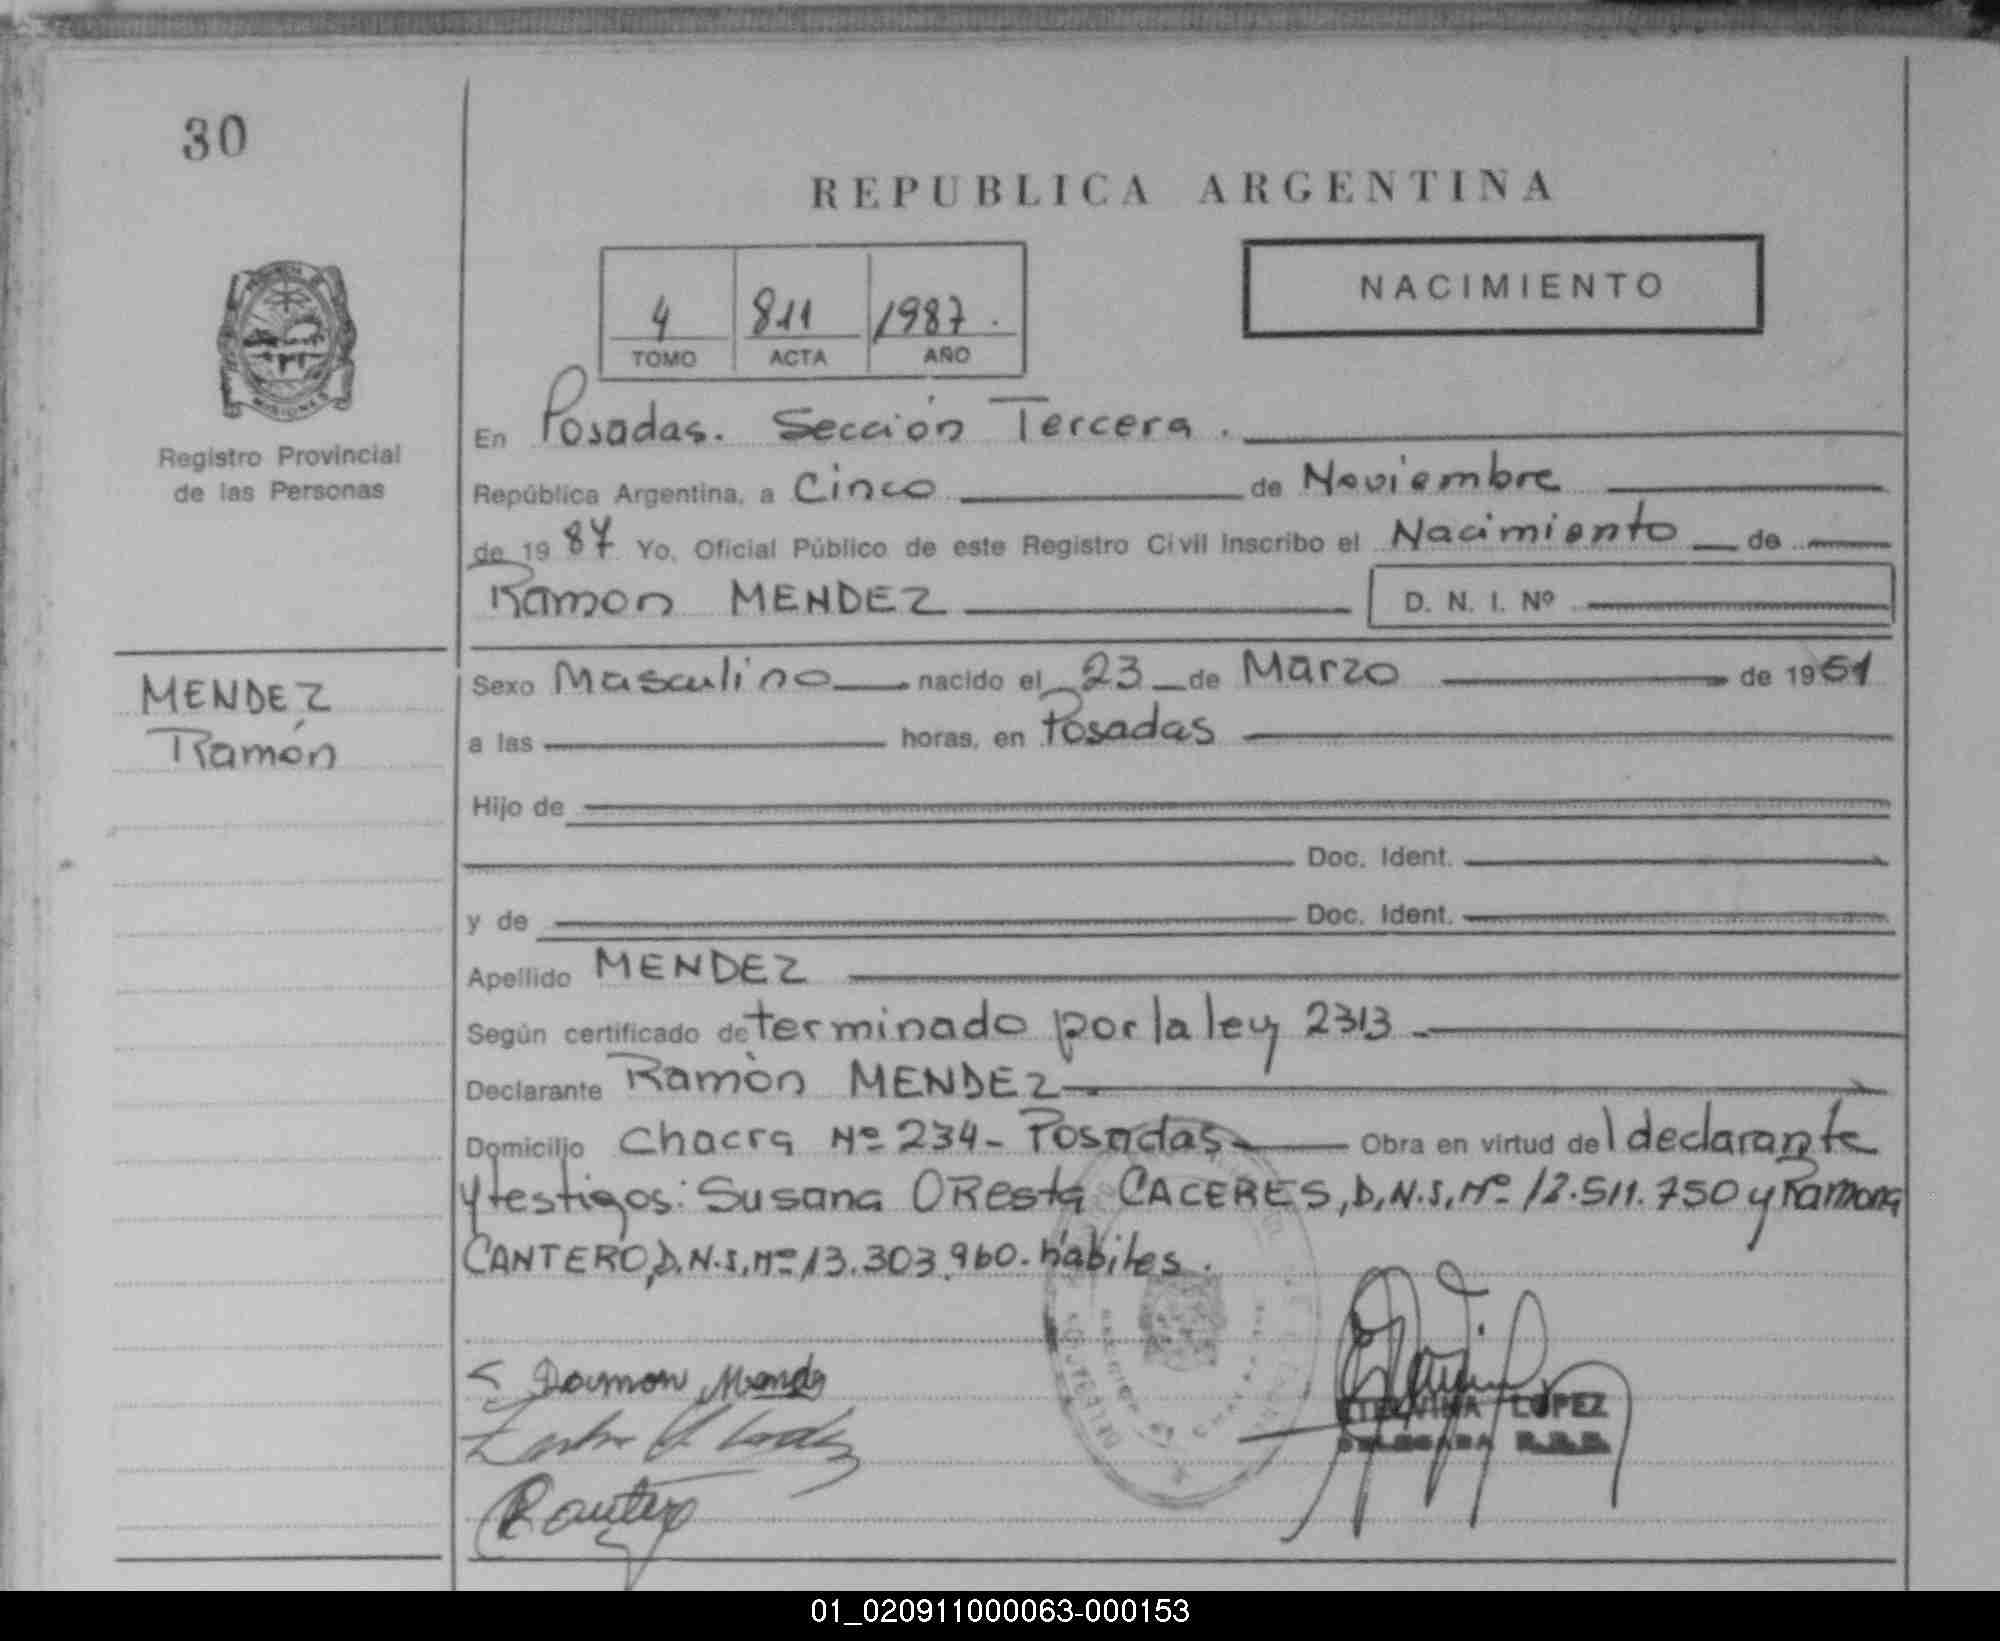 30
REPUBLICA ARGENTINA
4 811 1987.
TOMO ACTA AÑO
NACIMIENTO
MISIONES
Registro Provincial
de las Personas
En Posadas. Sección Tercera.
República Argentina, a Cinco de Noviembre
de 1987 Yo, Oficial Público de este Registro Civil inscribo el Nacimiento de
Ramon MENDEZ D. N. I. Nº
MENDEZ
Ramón
Sexo Masculino nacido el 23 de Marzo de 1961
a las horas, en Posadas
Hijo de
Doc. Ident.
y de Doc. Ident.
Apellido MENDEZ
Según certificado determinado por la ley 2313
Declarante Ramòn MENDEZ
Domicilio Chacra Nº 234- Posadas Obra en virtud del declarante
y testigos: Susana ORESta CACERES, D.N.I. Nº 12.511.750 y Ramona
CANTERO, D.N.I. Nº 13.303.960. hábiles.
Ramon Mende
LOPEZ
DELEGADA
01_020911000063-000153